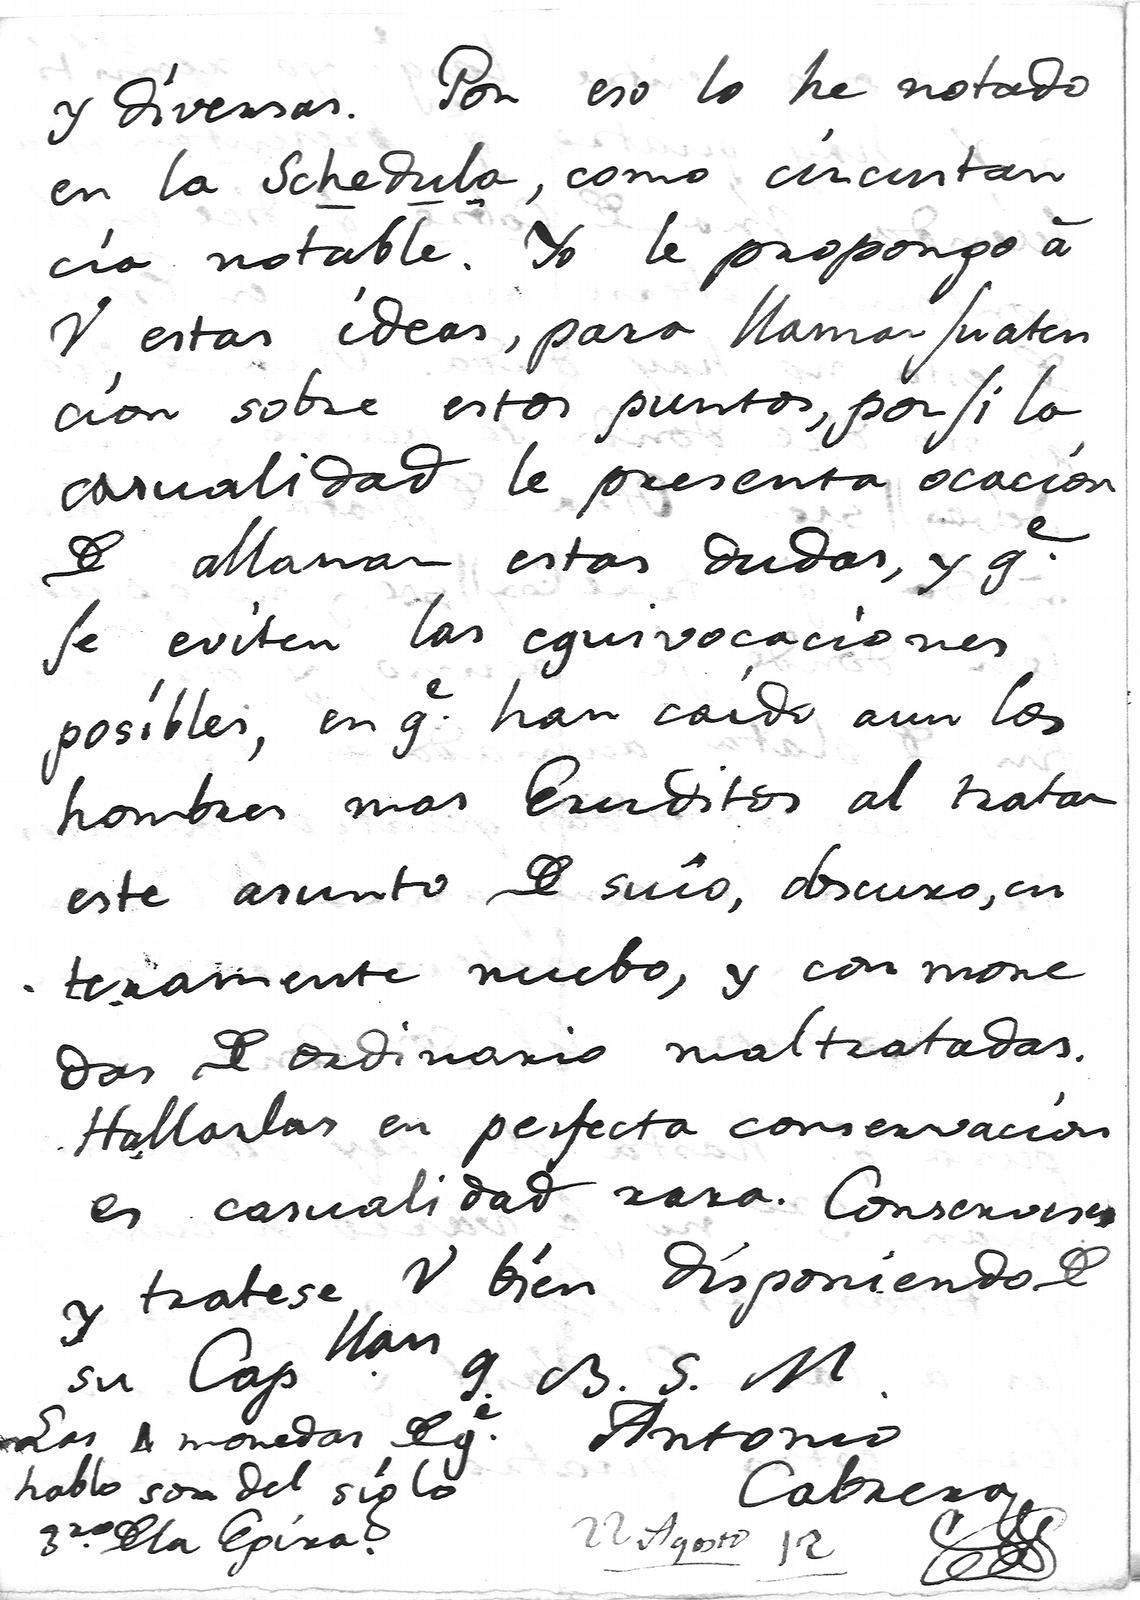 y diversas. Por eso lo he notado
en la Schedula, como circustan
cia notable. Yo le propongo à
V estas ideas, para llamar su aten
cion sobre estos puntos, por si la
casualidad le presenta ocación
De allanar estas dudas, y qe.
se eviten las equivocaciones
posibles, en qe. han caído aun los
hombres mas Eruditos al tratar
este asunto De suío, obscuro, en
teramente nuebo, y con mone
das De ordinario maltratadas.
Hallarlas en perfecta conservación
es casualidad rara. Conservese
y tratese V bien disponiendo De
su Capllan q. B. S. M.
Antonio
Cabrera
Las 4 monedas De qe.
hablo son del siglo
3ro. De la Epira?
22 Agosto 12